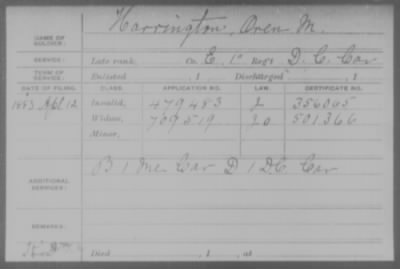 NAME OF SOLDIER: Harrington, Oren M.
SERVICE: Late rank, Co. E, 1" Reg't D. C. Cav
TERM OF SERVICE: Enlisted , 1 Discharged , 1
DATE OF FILING. CLASS. APPLICATION NO. LAW. CERTIFICATE NO.
1883 Apl 12 Invalid, 479483 356065
Widow, 709519 501366
Minor,
ADDITIONAL SERVICES: B 1 Me Cav D 1 D.C. Cav
REMARKS:
Died , 1 , at